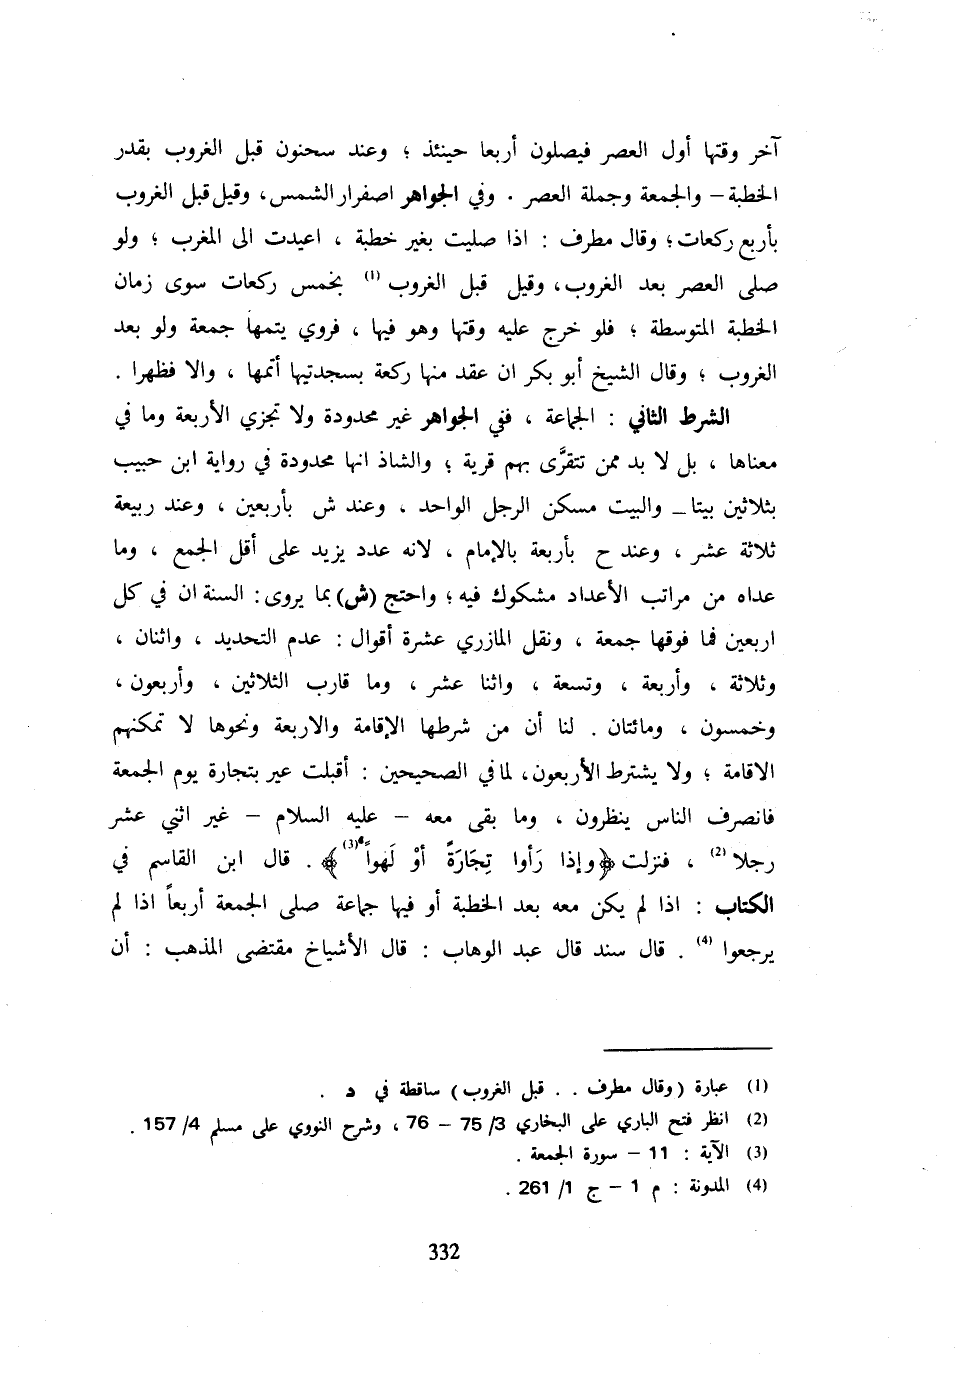 آخر وقتها أول العصر فيصلون أربعا حينئذ ؛ وعند سحنون قبل الغروب بقدر
الخطبة – والجمعة وجملة العصر . وفي الجواهر اصفرار الشمس ، وقيل قبل الغروب
بأربع ركعات ؛ وقال مطرف : اذا صليت بغير خطبة ، اعيدت الى المغرب ؛ ولو
صلى العصر بعد الغروب ، وقيل قبل الغروب (1) بخمس ركعات سوى زمان
الخطبة المتوسطة ؛ فلو خرج عليه وقتها وهو فيها ، فروي يتمها جمعة ولو بعد
الغروب ؛ وقال الشيخ أبو بكر ان عقد منها ركعة بسجدتيها أتمها ، والا فظهرا .
الشرط الثاني : الجماعة ، ففي الجواهر غير محدودة ولا تجزي الأربعة وما في
معناها ، بل لا بد ممن تتقرَّى بهم قرية ؛ والشاذ انها محدودة في رواية ابن حبيب
بثلاثين بيتا – والبيت مسكن الرجل الواحد ، وعند ش بأربعين ، وعند ربيعة
ثلاثة عشر ، وعند ح بأربعة بالإمام ، لانه عدد يزيد على أقل الجمع ، وما
عداه من مراتب الأعداد مشكوك فيه ؛ واحتج (ش) بما يروى : السنة ان في كل
اربعين فما فوقها جمعة ، ونقل المازري عشرة أقوال : عدم التحديد ، واثنان ،
وثلاثة ، وأربعة ، وتسعة ، واثنا عشر ، وما قارب الثلاثين ، وأربعون ،
وخمسون ، ومائتان . لنا أن من شرطها الإقامة والاربعة ونحوها لا تمكنهم
الاقامة ؛ ولا يشترط الأربعون ، لما في الصحيحين : أقبلت عير بتجارة يوم الجمعة
فانصرف الناس ينظرون ، وما بقى معه – عليه السلام – غير اثني عشر
رجلا (2) ، فنزلت ﴿وإذا رَأوا تِجَارَةً أوْ لَهواً (3)﴾ . قال ابن القاسم في
الكتاب : اذا لم يكن معه بعد الخطبة أو فيها جماعة صلى الجمعة أربعاً اذا لم
يرجعوا (4) . قال سند قال عبد الوهاب : قال الأشياخ مقتضى المذهب : أن
(1) عبارة (وقال مطرف . . قبل الغروب) ساقطة في د .
(2) انظر فتح الباري على البخاري 3/ 75 – 76 ، وشرح النووي على مسلم 4/ 157 .
(3) الآية : 11 – سورة الجمعة .
(4) المدونة : م 1 – ج 1/ 261 .
332